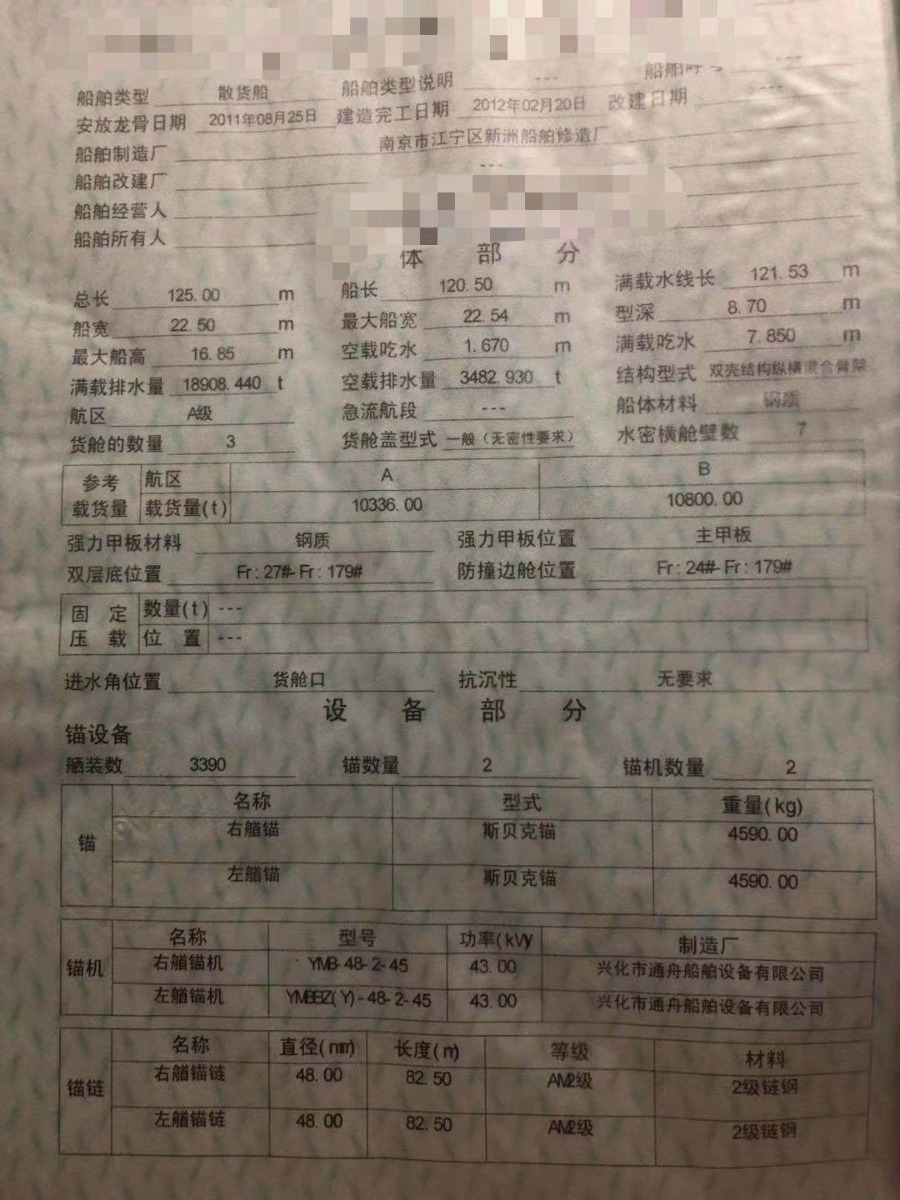 船舶呼号 ---
船舶类型 散货船 船舶类型说明 ---
安放龙骨日期 2011年08月25日 建造完工日期 2012年02月20日 改建日期 ---
船舶制造厂 南京市江宁区新洲船舶修造厂
船舶改建厂 ---
船舶经营人
船舶所有人
体 部 分
总长 125.00 m 船长 120.50 m 满载水线长 121.53 m
船宽 22.50 m 最大船宽 22.54 m 型深 8.70 m
最大船高 16.85 m 空载吃水 1.670 m 满载吃水 7.850 m
满载排水量 18908.440 t 空载排水量 3482.930 t 结构型式 双壳结构纵横混合骨架
航区 A级 急流航段 --- 船体材料 钢质
货舱的数量 3 货舱盖型式 一般（无密性要求） 水密横舱壁数 7
参考 航区 A B
载货量 载货量(t) 10336.00 10800.00
强力甲板材料 钢质 强力甲板位置 主甲板
双层底位置 Fr:27#-Fr:179# 防撞边舱位置 Fr:24#-Fr:179#
固定 数量(t) ---
压载 位置 ---
进水角位置 货舱口 抗沉性 无要求
设 备 部 分
锚设备
舾装数 3390 锚数量 2 锚机数量 2
名称 型式 重量(kg)
锚 右艏锚 斯贝克锚 4590.00
左艏锚 斯贝克锚 4590.00
名称 型号 功率(kW) 制造厂
锚机 右艏锚机 YMB-48-2-45 43.00 兴化市通舟船舶设备有限公司
左艏锚机 YMBBZ(Y)-48-2-45 43.00 兴化市通舟船舶设备有限公司
名称 直径(mm) 长度(m) 等级 材料
锚链 右艏锚链 48.00 82.50 AM2级 2级链钢
左艏锚链 48.00 82.50 AM2级 2级链钢